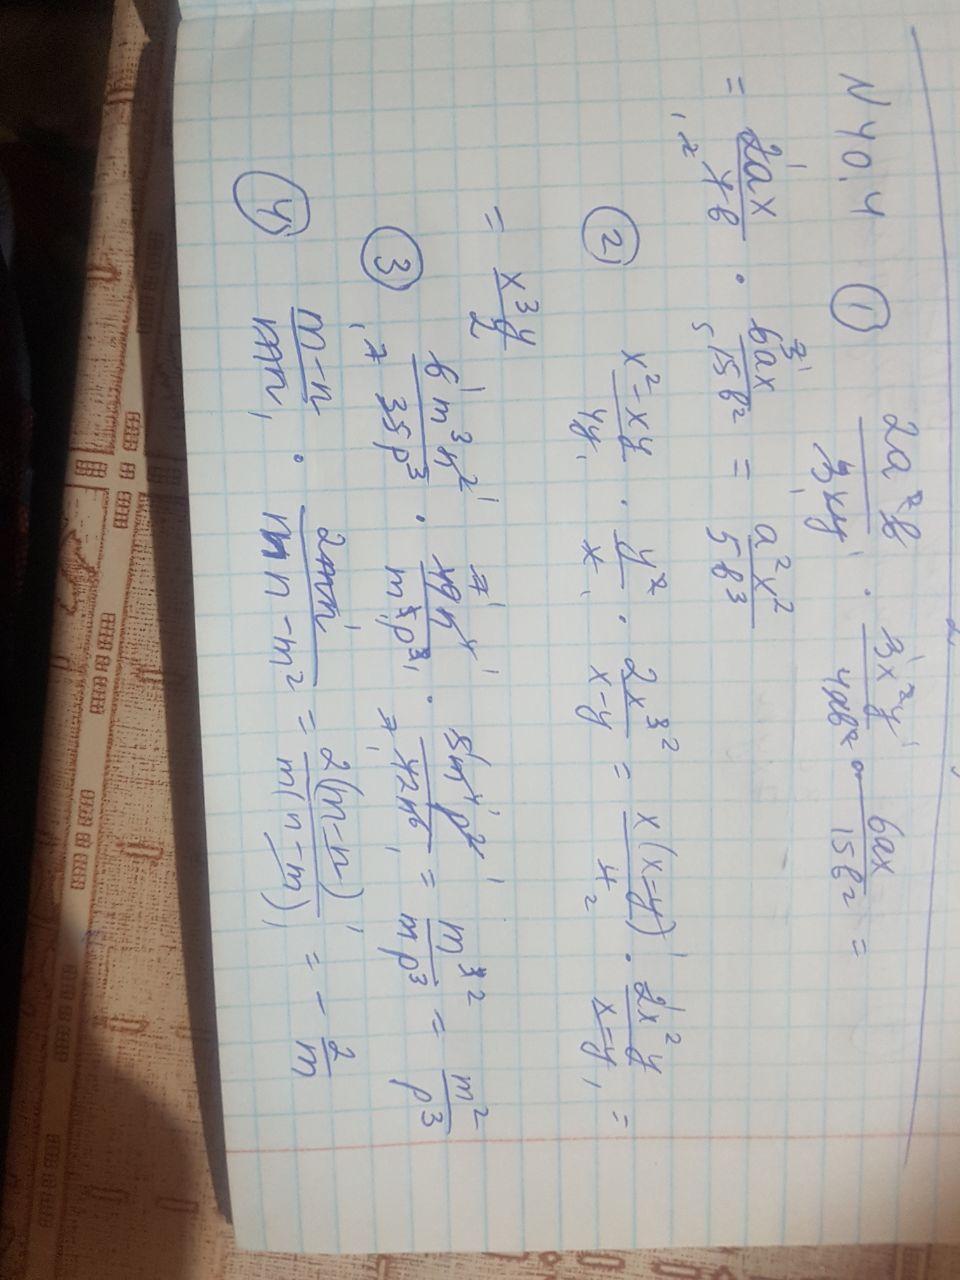 N 40.4 ① 2a²b/3xy · 3x²y/4ab² · 6ax/15b² =
= 2ax/4b · 6ax/15b² = a²x²/5b³
② x²-xy/4y · y²/x · 2x³/x-y = x(x-y)/4 · 2x²y/x-y =
= x³y/2
③ 6m³n²/35p³ · 49n⁴/m⁵p³ · 5m⁴p²/42n⁶ = m³/mp³ = m²/p³
④ m-n/mn · 2mn/mn-m² = 2(m-n)/m(n-m) = -2/m